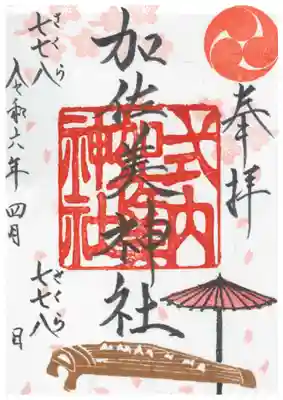 奉拝
加佐美神社
式内
神社
さくら
七七八
ざくら
七七八
令和六年 四月 日